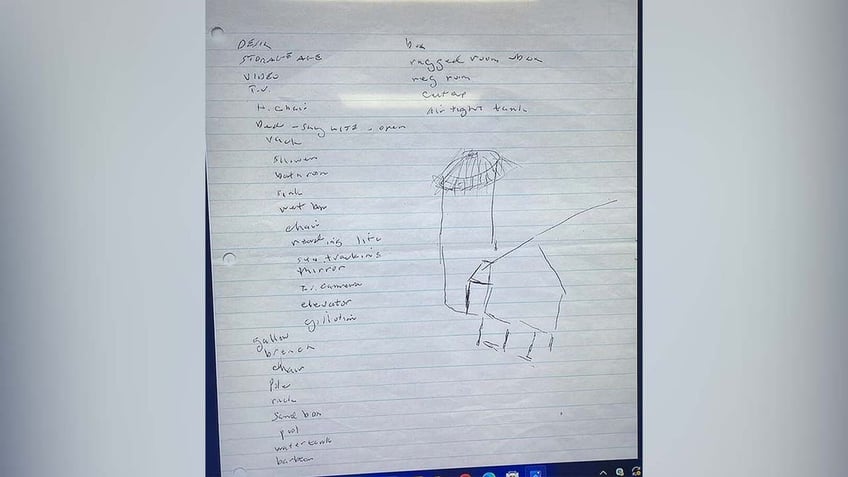 DESK
STORAGE
VIDEO
T.V.
H. chair
Bed - - open
rack
shower
bathroom
sink
wet bar
chair
reading lite
sun tracking
mirror
T.V. camera
elevator
gillotin
gallow
branch
chair
Pole
rack
Sand box
pool
water tank
box
ragged room
reg room
cut ap
Air tight tank